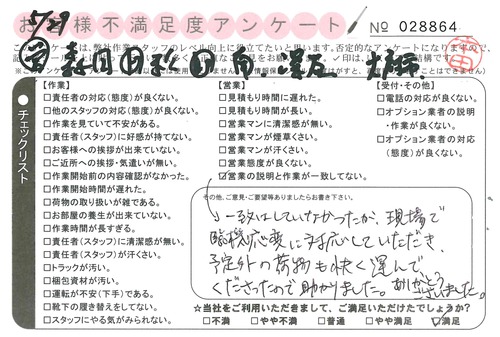 7/29
お客様不満足度アンケート
No 028864
【作業】
□責任者の対応(態度)が良くない。
□他のスタッフの対応(態度)が良くない。
□作業を見ていて不安がある。
□責任者(スタッフ)に好感が持てない。
□お客様への挨拶が出来ていない。
□ご近所への挨拶・気遣いが無い。
□作業開始前の内容確認がなかった。
□作業開始時間が遅れた。
□荷物の取り扱いが雑である。
□お部屋の養生が出来ていない。
□作業時間が長すぎる。
□責任者(スタッフ)に清潔感が無い。
□責任者(スタッフ)が汗くさい。
□トラックが汚い。
□梱包資材が汚い。
□運転が不安(下手)である。
□靴下の履き替えをしてない。
□スタッフにやる気がみられない。
チェックリスト
【営業】
□見積もり時間に遅れた。
□見積もり時間が長い。
□営業マンに清潔感が無い。
□営業マンが煙草くさい。
□営業マンが汗くさい。
□営業態度が良くない。
☑営業の説明と作業が一致してない。
【受付・その他】
□電話の対応が良くない。
□オプション業者の説明
・作業が良くない。
□オプション業者の対応
(態度)が良くない。
その他、ご意見・ご要望等ありましたらお書き下さい。
一致はしていなかったが、現場で
臨機応変に対応していただき、
予定外の荷物も快く運んで
くださったので助かりました。ありがとうございました。
☆当社をご利用いただきまして、ご満足いただけたでしょうか?
□不満 □やや不満 □普通 □やや満足 ☑満足